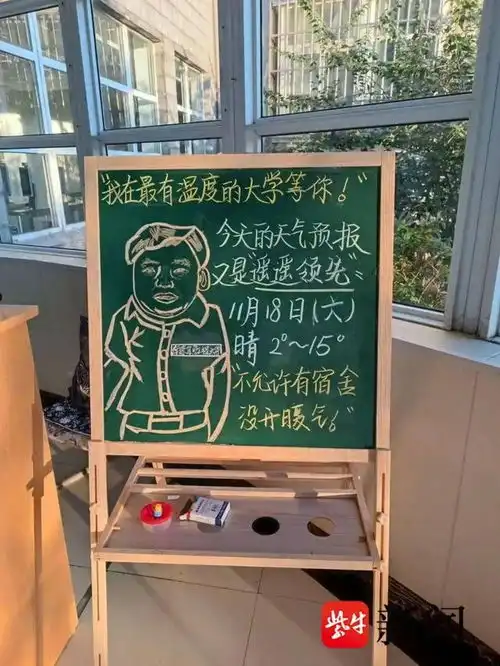 "我在最有温度的大学等你！"
今天的天气预报
又是"遥遥领先"
11月18日(六)
晴 2°~15°
"不允许有宿舍
没开暖气。"
紫牛
新闻